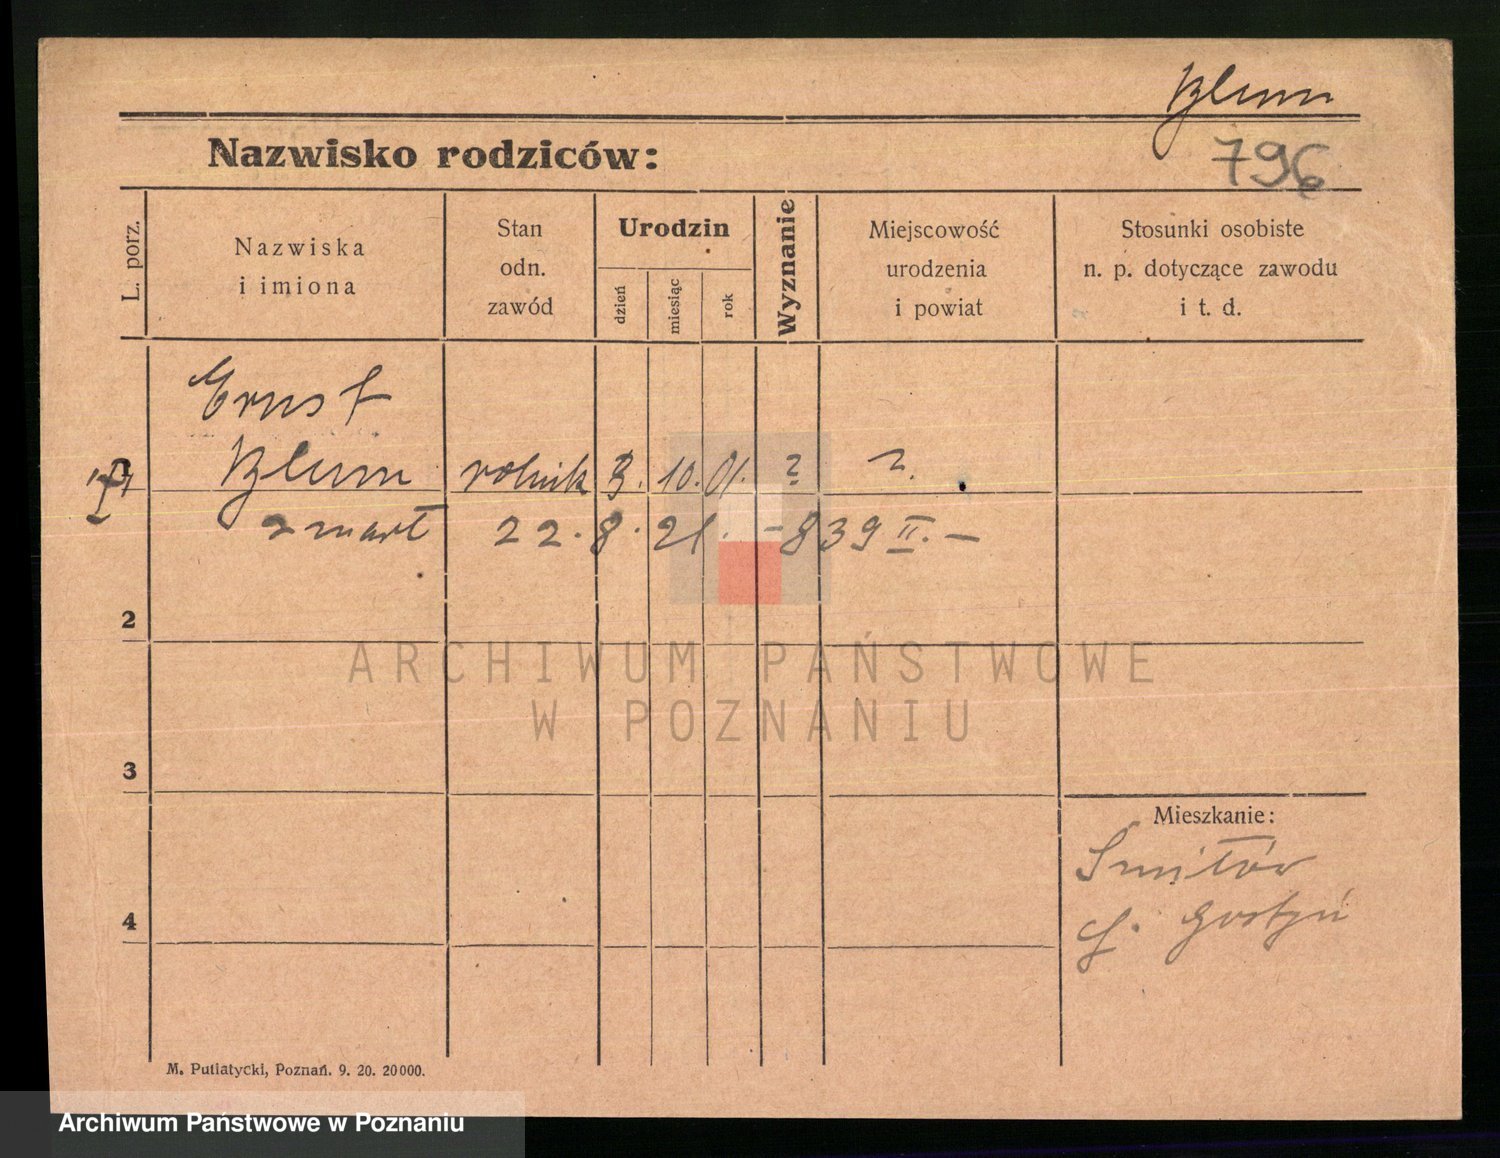 Blum
Nazwisko rodziców:
796
L. porz.
Nazwiska
i imiona
Stan
odn.
zawód
Urodzin
dzień
miesiąc
rok
Wyznanie
Miejscowość
urodzenia
i powiat
Stosunki osobiste
n. p. dotyczące zawodu
i t. d.
Ernst
Blum rolnik 3. 10. 01. ? ?
zmarł 22. 8. 21. - 839 II. -
2
3
4
Mieszkanie:
Smiłów
Gostyń
M. Putiatycki, Poznań. 9. 20. 20000.
ARCHIWUM PAŃSTWOWE
W POZNANIU
Archiwum Państwowe w Poznaniu